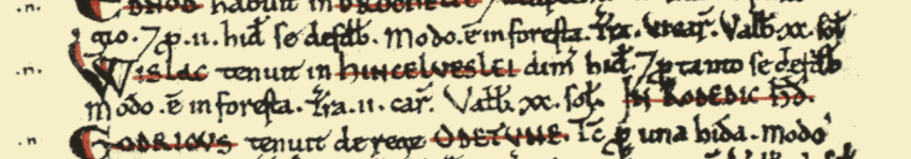 .n. EDNOD habuit in
gio. 7 p .ii. hid se defdb. Modo. ē in foresta. Tra. .iiii. car. Valb. xx. sol
.n. WISLAC tenuit in HINCELVESLEI dim hid. 7 p tanto se defdb
modo. ē in foresta. Tra .ii. car. Valb. xx. sol. IN RODEDIC HD.
.n GODRICUS tenuit de rege ODETUNE. Tc p una hida. modo